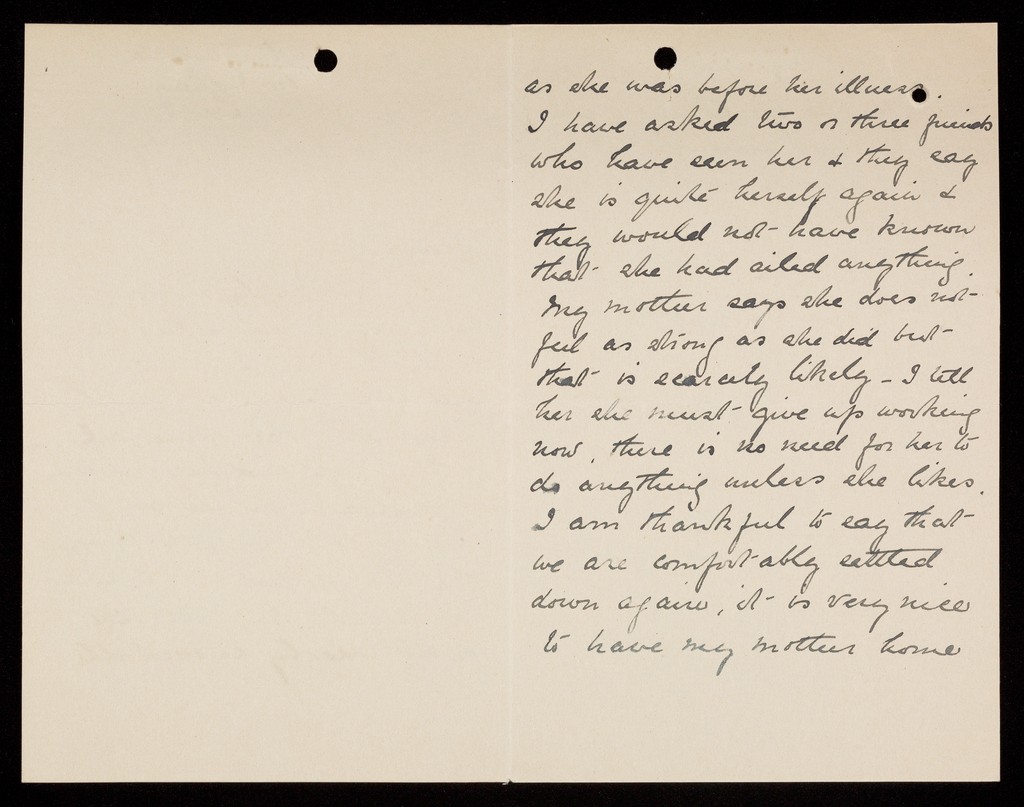 as she was before her illness.
I have asked two or three friends
who have seen her & they say
she is quite herself again &
they would not have known
that she had ailed anything.
My mother says she does not
feel as strong as she did but
that is scarcely likely - I tell
her she must give up working
now, there is no need for her to
do anything unless she likes.
I am thankful to say that
we are comfortably settled
down again, it is very nice
to have my mother home